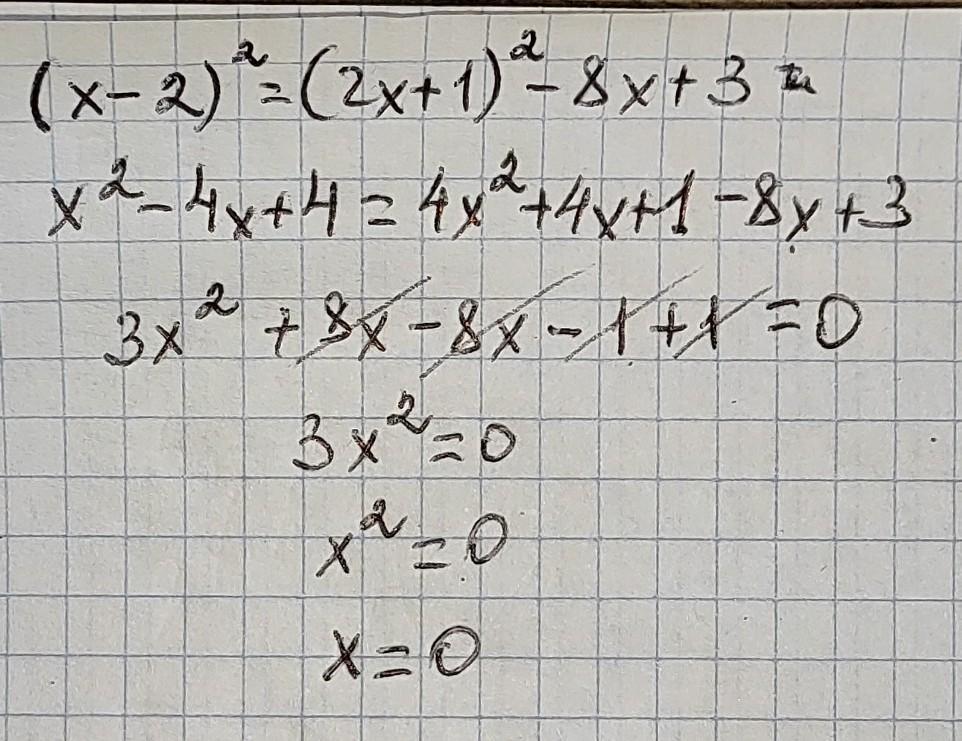 (x-2)²=(2x+1)²-8x+3
x²-4x+4=4x²+4x+1-8x+3
3x²+8x-8x-1+1=0
3x²=0
x²=0
x=0